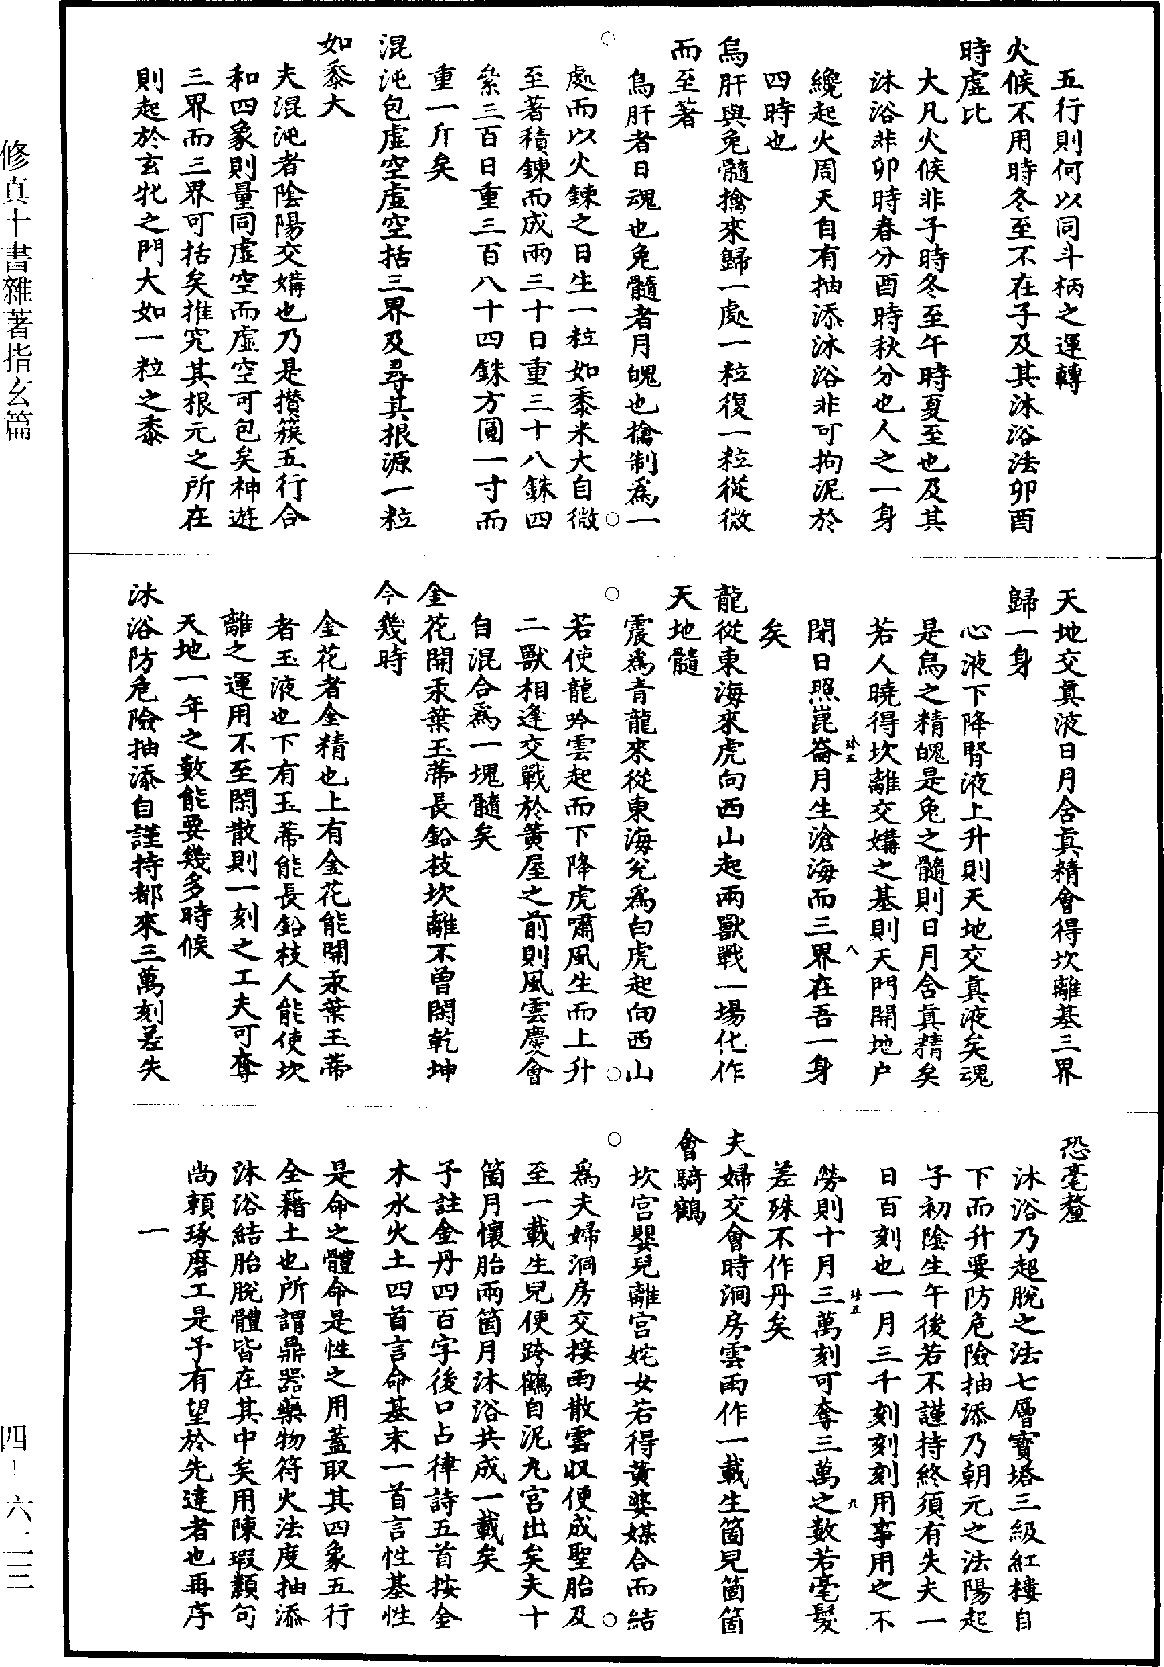 五行則何以同斗柄之運轉
火候不用時冬至不在子及其沐浴法卯酉
時虛比
大凡火候非子時冬至午時夏至也及其
沐浴非卯時春分酉時秋分也人之一身
纔起火周天自有抽添沐浴非可拘泥於
四時也
烏肝與兔髓擒來歸一處一粒復一粒從微
而至著
烏肝者日魂也兔髓者月魄也擒制爲一
處而以火鍊之日生一粒如黍米大自微
至著積鍊而成兩三十日重三十八銖四
絫三百日重三百八十四銖方圓一寸而
重一斤矣
混沌包虛空虛空括三界及尋其根源一粒
如黍大
夫混沌者陰陽交媾也乃是攢簇五行合
和四象則量同虛空而虛空可包矣神遊
三界而三界可括矣推究其根元之所在
則起於玄牝之門大如一粒之黍
天地交眞液日月含眞精會得坎離基三界
歸一身
心液下降腎液上升則天地交眞液矣魂
是烏之精魄是兔之髓則日月含眞精矣
若人曉得坎離交媾之基則天門開地戶
閉日照崑崙月生滄海而三界在吾一身
矣
龍從東海來虎向西山起兩獸戰一場化作
天地髓
震爲青龍來從東海兊爲白虎起向西山
若使龍吟雲起而下降虎嘯風生而上升
二獸相逢交戰於黃屋之前則風雲慶會
自混合爲一塊髓矣
金花開汞葉玉蔕長鉛枝坎離不曾閑乾坤
今幾時
金花者金精也上有金花能開汞葉玉蔕
者玉液也下有玉蔕能長鉛枝人能使坎
離之運用不至閑散則一刻之工夫可奪
天地一年之數能要幾多時候
沐浴防危險抽添自謹持都來三萬刻差失
恐毫釐
沐浴乃超脫之法七層寶塔三級紅樓自
下而升要防危險抽添乃朝元之法陽起
子初陰生午後若不謹持終須有失夫一
日百刻也一月三千刻刻刻用事用之不
勞則十月三萬刻可奪三萬之數若毫髮
差殊不作丹矣
夫婦交會時洞房雲雨作一載生箇兒箇箇
會騎鶴
坎宮嬰兒離宮姹女若得黃婆媒合而結
爲夫婦洞房交接雨散雲収便成聖胎及
至一載生兒便跨鶴自泥丸宮出矣夫十
箇月懷胎兩箇月沐浴共成一載矣
子註金丹四百字後口占律詩五首按金
木水火土四首言命基末一首言性基性
是命之體命是性之用蓋取其四象五行
全藉土也所謂鼎器藥物符火法度抽添
沐浴結胎脫體皆在其中矣用陳瑕纇句
尚賴琢磨工是予有望於先達者也再序
一
修真十書雜著指玄篇
四-六二三